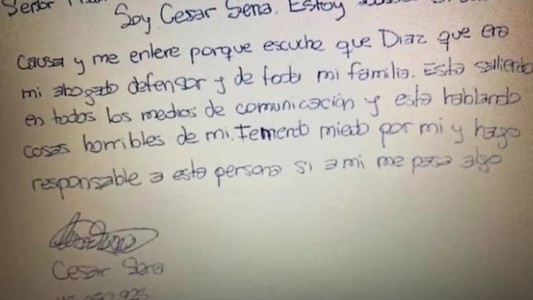 Señor
Soy Cesar Sena. Estoy
Causa y me entere porque escuche que Diaz que era
mi abogado defensor y de toda mi familia. Esta saliendo
en todos los medios de comunicación y esta hablando
cosas horribles de mi. Temento miedo por mi y hago
responsable a esta persona si a mi me pasa algo
Cesar Sena